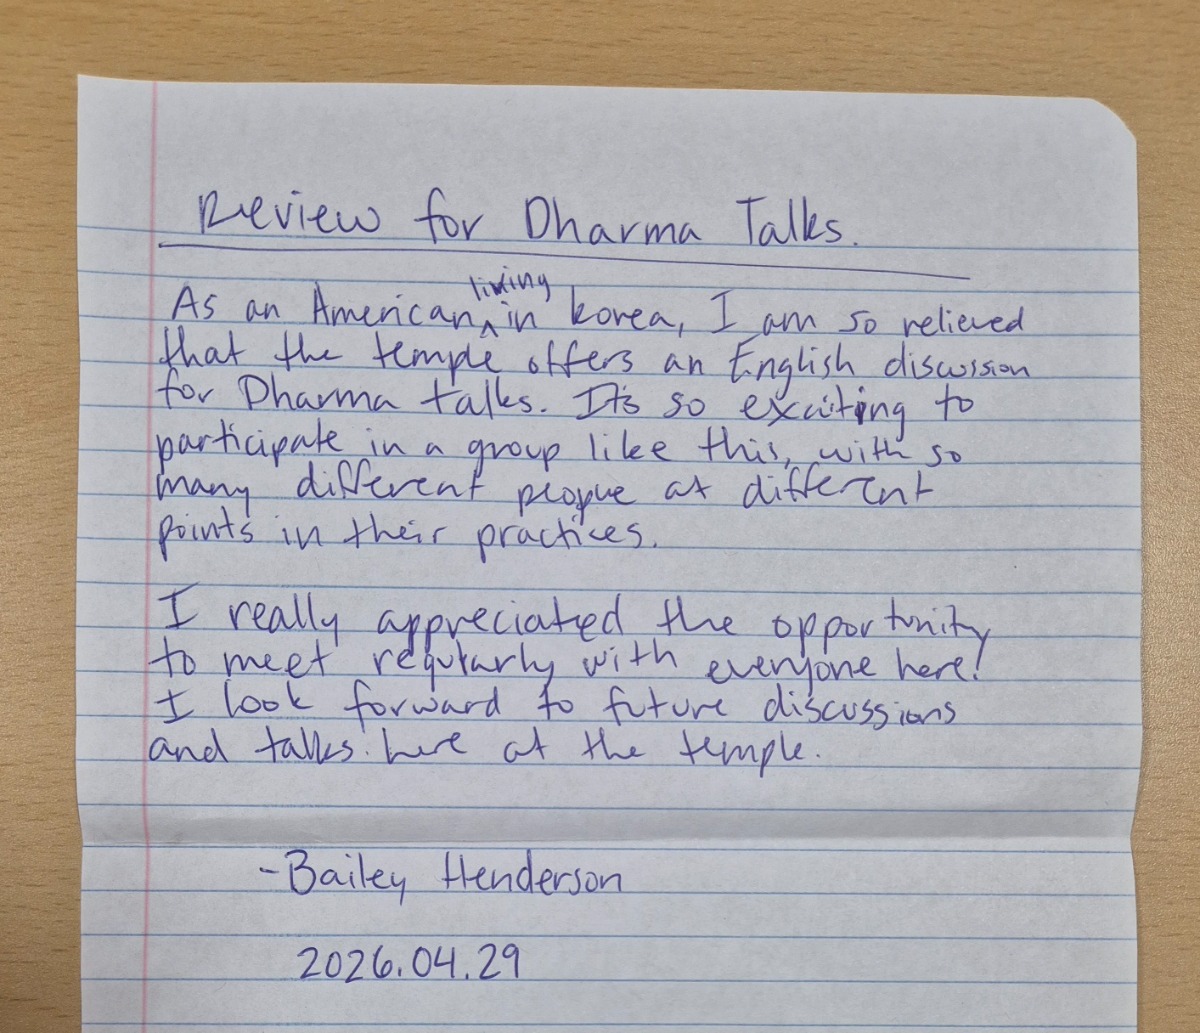 Review for Dharma Talks.
As an American living in Korea, I am so relieved
that the temple offers an English discussion
for Dharma talks. It's so exciting to
participate in a group like this, with so
many different people at different
points in their practices.
I really appreciated the opportunity
to meet regularly with everyone here!
I look forward to future discussions
and talks here at the temple.
-Bailey Henderson
2026.04.29